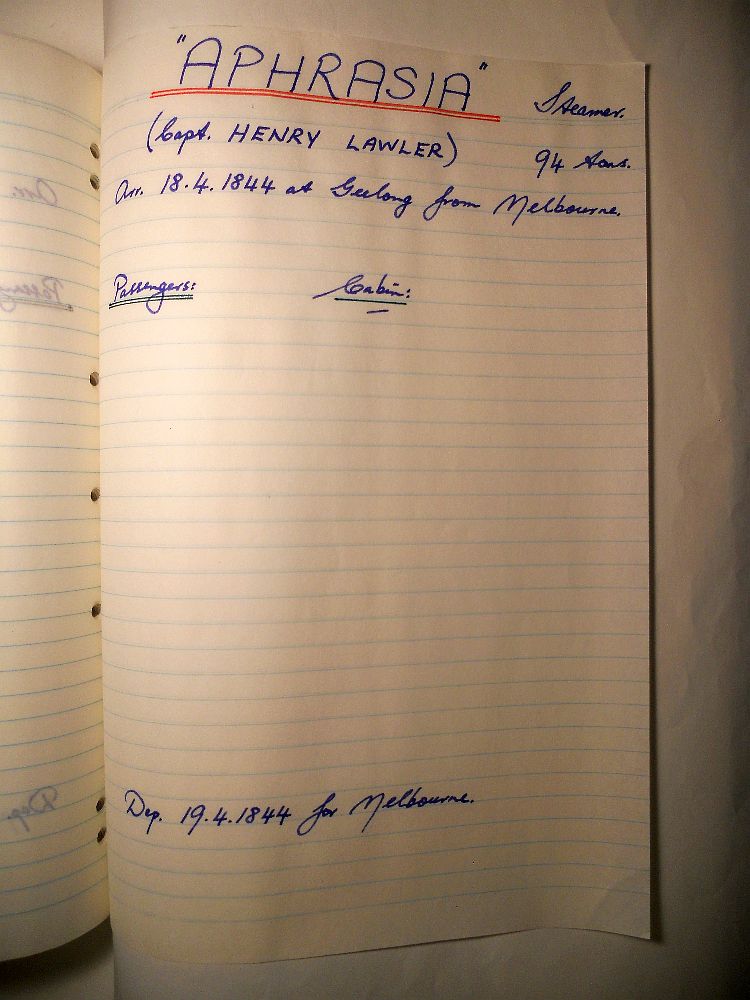 "APHRASIA" Steamer.
(Capt. HENRY LAWLER) 94 tons.
Arr. 18.4.1844 at Geelong from Melbourne.
Passengers: Cabin:
Dep. 19.4.1844 for Melbourne.